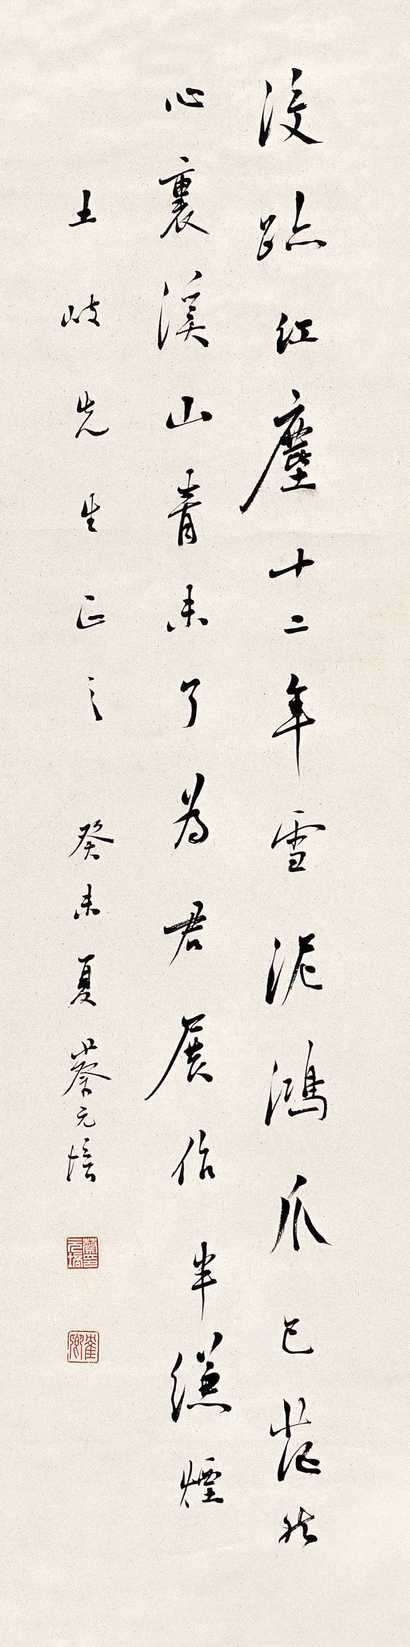 没跡紅塵十二年雪泥鴻爪已茫然
心裏溪山青未了為君展作半縑煙
土岐先生正之 癸未夏 蔡元培